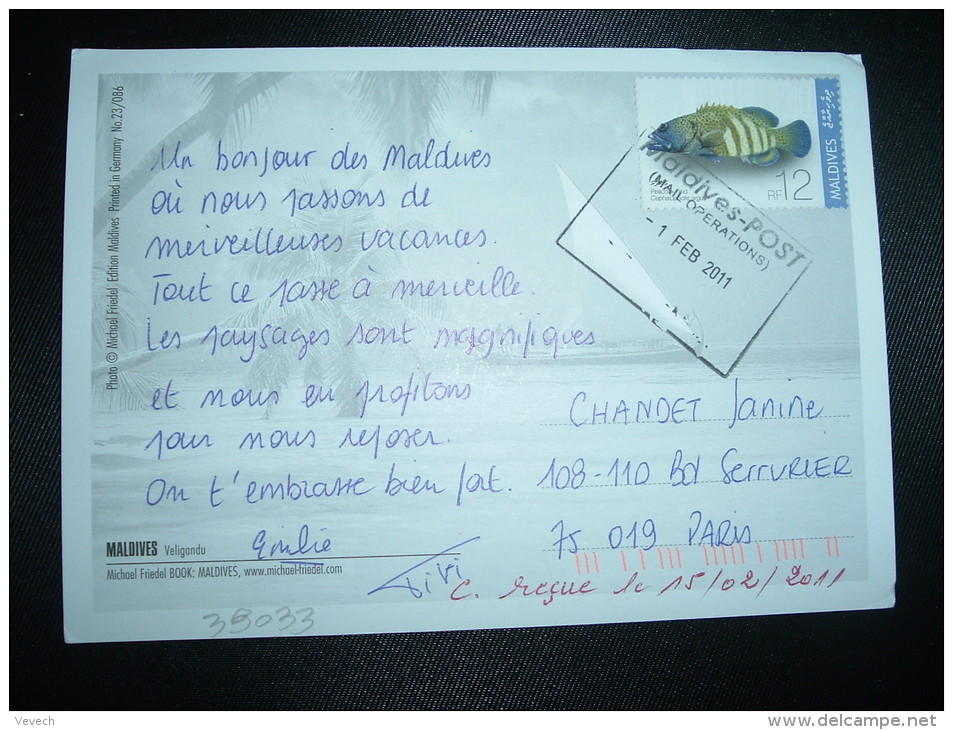 Un bonjour des Maldives
où nous passons de
merveilleuses vacances.
Tout ce passe à merveille.
Les paysages sont magnifiques
et nous en profitons
pour nous reposer.
On t'embrasse bien fort.
Emilie
MALDIVES Veligandu
Michael Friedel BOOK: MALDIVES, www.michael-friedel.com
39033
Photo © Michael Friedel Edition Maldives Printed in Germany No.23/086
MALDIVES
RF 12
Maldives-POST
(MAIL OPERATIONS)
- 1 FEB 2011
CHANDET Janine
108-110 Bd SERRURIER
75 019 PARIS
C. reçue le 15/02/2011
Vevech
delcampe.net